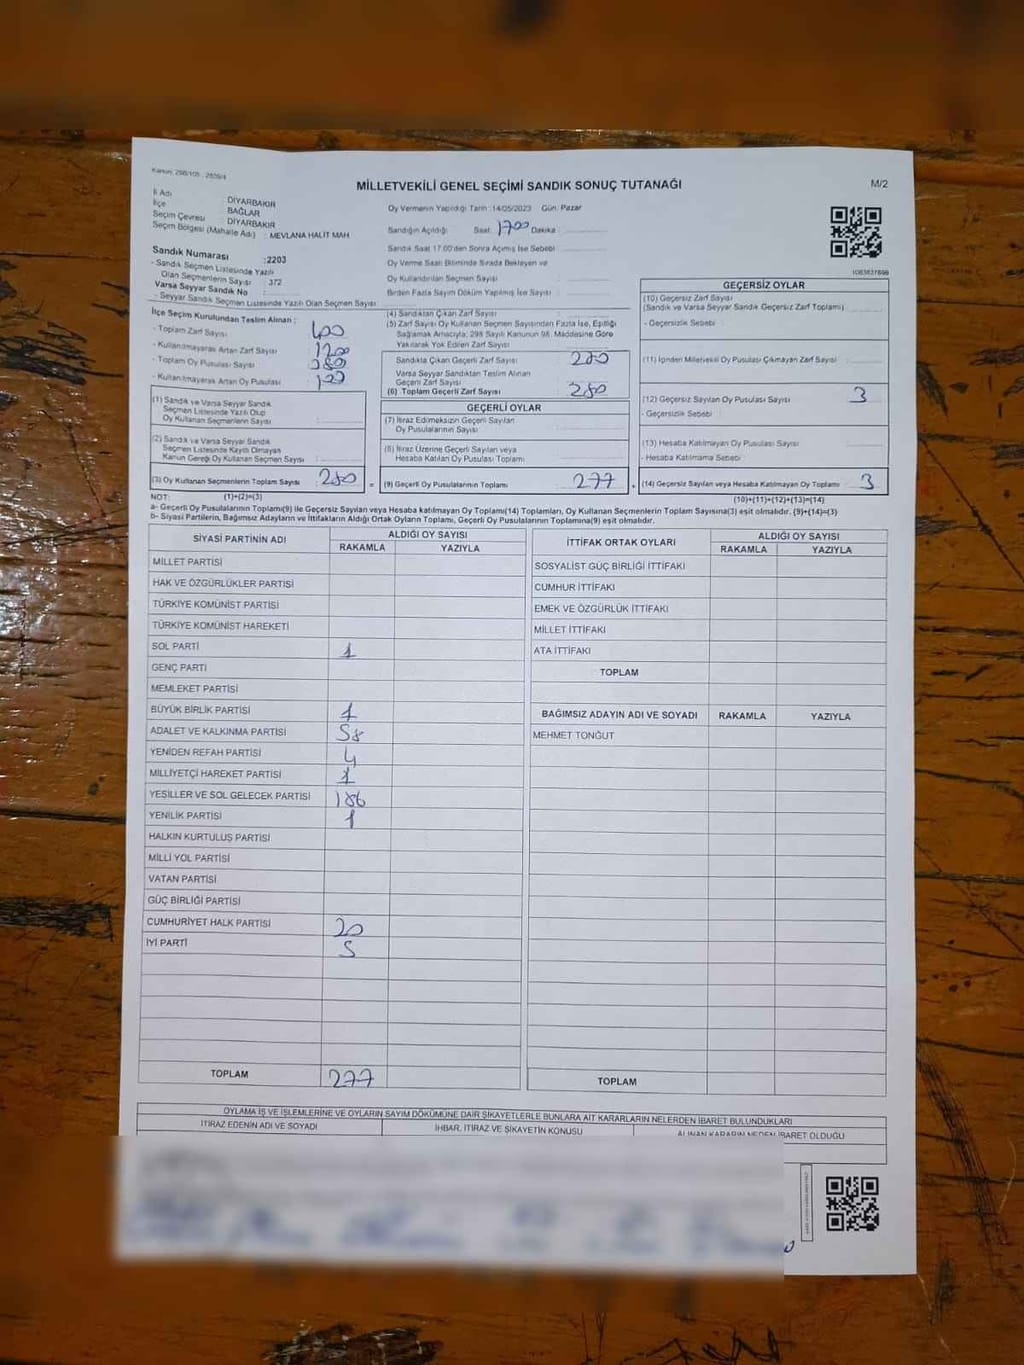 Kanun: 298/105 , 2839/4
MİLLETVEKİLİ GENEL SEÇİMİ SANDIK SONUÇ TUTANAĞI
M/2
İl Adı DİYARBAKIR
İlçe BAĞLAR
Seçim Çevresi DİYARBAKIR
Seçim Bölgesi (Mahalle Adı) : MEVLANA HALİT MAH
Oy Vermenin Yapıldığı Tarih :14/05/2023 Gün: Pazar
Sandığın Açıldığı Saat: 1700 Dakika :
Sandık Saat 17:00'den Sonra Açılmış İse Sebebi :
Oy Verme Saati Bitiminde Sırada Bekleyen ve
Oy Kullandırılan Seçmen Sayısı :
Birden Fazla Sayım Döküm Yapılmış İse Sayısı :
Sandık Numarası :2203
- Sandık Seçmen Listesinde Yazılı
Olan Seçmenlerin Sayısı : 372
Varsa Seyyar Sandık No :
- Seyyar Sandık Seçmen Listesinde Yazılı Olan Seçmen Sayısı :
İlçe Seçim Kurulundan Teslim Alınan :
- Toplam Zarf Sayısı : 400
- Kullanılmayarak Artan Zarf Sayısı :
- Toplam Oy Pusulası Sayısı :
- Kullanılmayarak Artan Oy Pusulası :
(1) Sandık ve Varsa Seyyar Sandık
Seçmen Listesinde Yazılı Olup
Oy Kullanan Seçmenlerin Sayısı :
(2) Sandık ve Varsa Seyyar Sandık
Seçmen Listesinde Kayıtlı Olmayan
Kanun Gereği Oy Kullanan Seçmen Sayısı :
(3) Oy Kullanan Seçmenlerin Toplam Sayısı : 280
(4) Sandıktan Çıkan Zarf Sayısı :
(5) Zarf Sayısı Oy Kullanan Seçmen Sayısından Fazla İse, Eşitliği
Sağlamak Amacıyla, 298 Sayılı Kanunun 98. Maddesine Göre
Yakılarak Yok Edilen Zarf Sayısı :
Sandıkta Çıkan Geçerli Zarf Sayısı : 280
Varsa Seyyar Sandıktan Teslim Alınan
Geçerli Zarf Sayısı :
(6) Toplam Geçerli Zarf Sayısı : 280
GEÇERLİ OYLAR
(7) İtiraz Edilmeksizin Geçerli Sayılan
Oy Pusulalarının Sayısı :
(8) İtiraz Üzerine Geçerli Sayılan veya
Hesaba Katılan Oy Pusulası Toplamı :
(9) Geçerli Oy Pusulalarının Toplamı : 277
1083637898
GEÇERSİZ OYLAR
(10) Geçersiz Zarf Sayısı
(Sandık ve Varsa Seyyar Sandık Geçersiz Zarf Toplamı) :
- Geçersizlik Sebebi :
(11) İçinden Milletvekili Oy Pusulası Çıkmayan Zarf Sayısı :
(12) Geçersiz Sayılan Oy Pusulası Sayısı : 3
- Geçersizlik Sebebi :
(13) Hesaba Katılmayan Oy Pusulası Sayısı :
- Hesaba Katılmama Sebebi :
(14) Geçersiz Sayılan veya Hesaba Katılmayan Oy Toplamı : 3
NOT: (1)+(2)=(3) (10)+(11)+(12)+(13)=(14)
a- Geçerli Oy Pusulalarının Toplamı(9) ile Geçersiz Sayılan veya Hesaba katılmayan Oy Toplamı(14) Toplamları, Oy Kullanan Seçmenlerin Toplam Sayısına(3) eşit olmalıdır. (9)+(14)=(3)
b- Siyasi Partilerin, Bağımsız Adayların ve İttifakların Aldığı Ortak Oyların Toplamı, Geçerli Oy Pusulalarının Toplamına(9) eşit olmalıdır.
SİYASİ PARTİNİN ADI ALDIĞI OY SAYISI
RAKAMLA YAZIYLA
MİLLET PARTİSİ
HAK VE ÖZGÜRLÜKLER PARTİSİ
TÜRKİYE KOMÜNİST PARTİSİ
TÜRKİYE KOMÜNİST HAREKETİ
SOL PARTİ 1
GENÇ PARTİ
MEMLEKET PARTİSİ
BÜYÜK BİRLİK PARTİSİ 1
ADALET VE KALKINMA PARTİSİ 58
YENİDEN REFAH PARTİSİ 4
MİLLİYETÇİ HAREKET PARTİSİ 1
YEŞİLLER VE SOL GELECEK PARTİSİ 186
YENİLİK PARTİSİ 1
HALKIN KURTULUŞ PARTİSİ
MİLLİ YOL PARTİSİ
VATAN PARTİSİ
GÜÇ BİRLİĞİ PARTİSİ
CUMHURİYET HALK PARTİSİ 20
İYİ PARTİ 5
TOPLAM 277
İTTİFAK ORTAK OYLARI ALDIĞI OY SAYISI
RAKAMLA YAZIYLA
SOSYALİST GÜÇ BİRLİĞİ İTTİFAKI
CUMHUR İTTİFAKI
EMEK VE ÖZGÜRLÜK İTTİFAKI
MİLLET İTTİFAKI
ATA İTTİFAKI
TOPLAM
BAĞIMSIZ ADAYIN ADI VE SOYADI RAKAMLA YAZIYLA
MEHMET TONĞUT
TOPLAM
OYLAMA İŞ VE İŞLEMLERİNE VE OYLARIN SAYIM DÖKÜMÜNE DAİR ŞİKAYETLERLE BUNLARA AİT KARARLARIN NELERDEN İBARET BULUNDUKLARI
İTİRAZ EDENİN ADI VE SOYADI İHBAR, İTİRAZ VE ŞİKAYETİN KONUSU ALINAN KARARIN NEDEN İBARET OLDUĞU